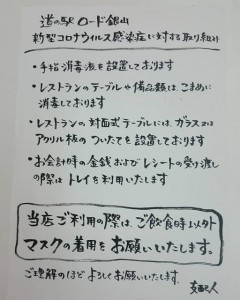 道の駅 ロード銀山
新型コロナウイルス感染症に対する取り組み
・手指消毒液を設置しております
・レストランのテーブルや備品類は、こまめに
消毒しております
・レストランの対面式テーブルには、ガラス又は
アクリル板のついたてを設置しております
・お会計時の金銭およびレシートの受け渡し
の際は トレイを利用いたします
当店ご利用の際は、ご飲食時以外
マスクの着用をお願いいたします。
ご理解のほど よろしくお願いいたします。
支配人